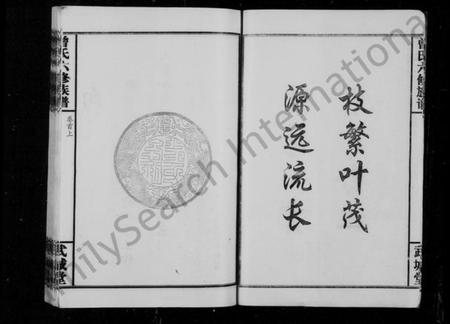 枝繁叶茂
源远流长
曾氏六修族谱
武城堂
曾氏六修族谱
卷首上
武城堂
FamilySearch International